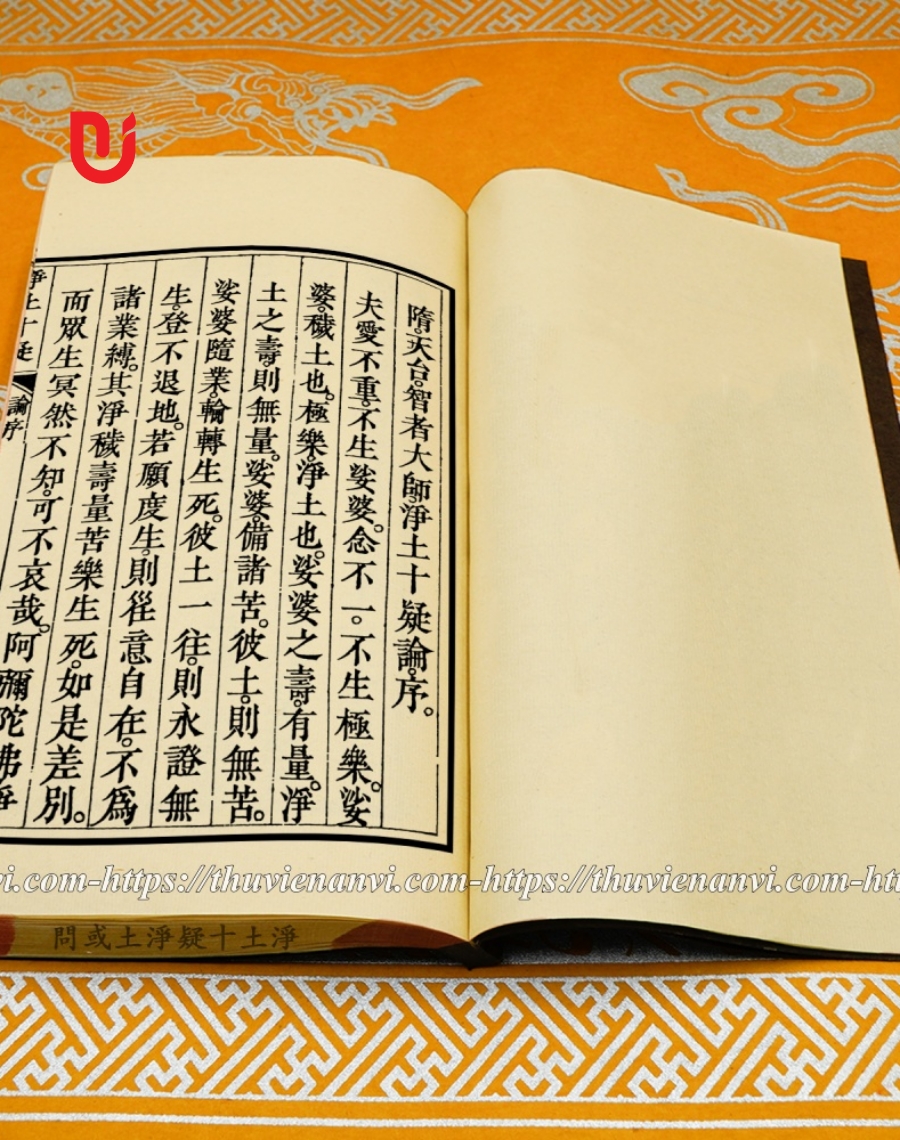 隋。天台。智者大師。淨土十疑論。序。
夫愛不重。不生娑婆。念不一。不生極樂。娑
婆。穢土也。極樂。淨土也。娑婆之壽。有量。淨
土之壽。則無量。娑婆。備諸苦。彼土。則無苦。
娑婆隨業。輪轉生死。彼土一往。則永證無
生。登不退地。若願度生。則從意自在。不爲
諸業縛。其淨穢壽量苦樂生死。如是差別。
而眾生冥然不知。可不哀哉。阿彌陀佛淨
淨土十疑
論序
vi.com-https://thuvienanvi.com-https://thuvienanvi.com-htt
淨土十疑淨土或問